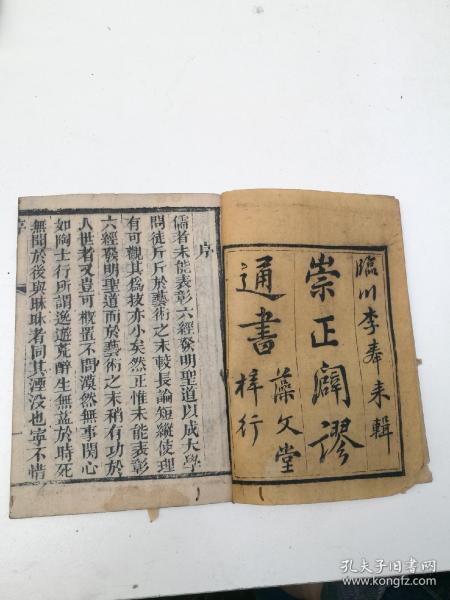 臨川李奉来輯
崇正闢謬
通書
藻文堂
梓行
序
儒者未能表彰六經發明聖道以成大學
問徒斤斤於藝術之末較長論短縱使理
有可觀其爲技亦小矣然正惟未能表彰
六經發明聖道而於藝術之末稍有功於
人世者又豈可概置不問漠然無事関心
如陶士行所謂逸遊荒醉生無益於時死
無聞於後與草木同其湮没也寧不惜
孔夫子旧书网
www.kongfz.com